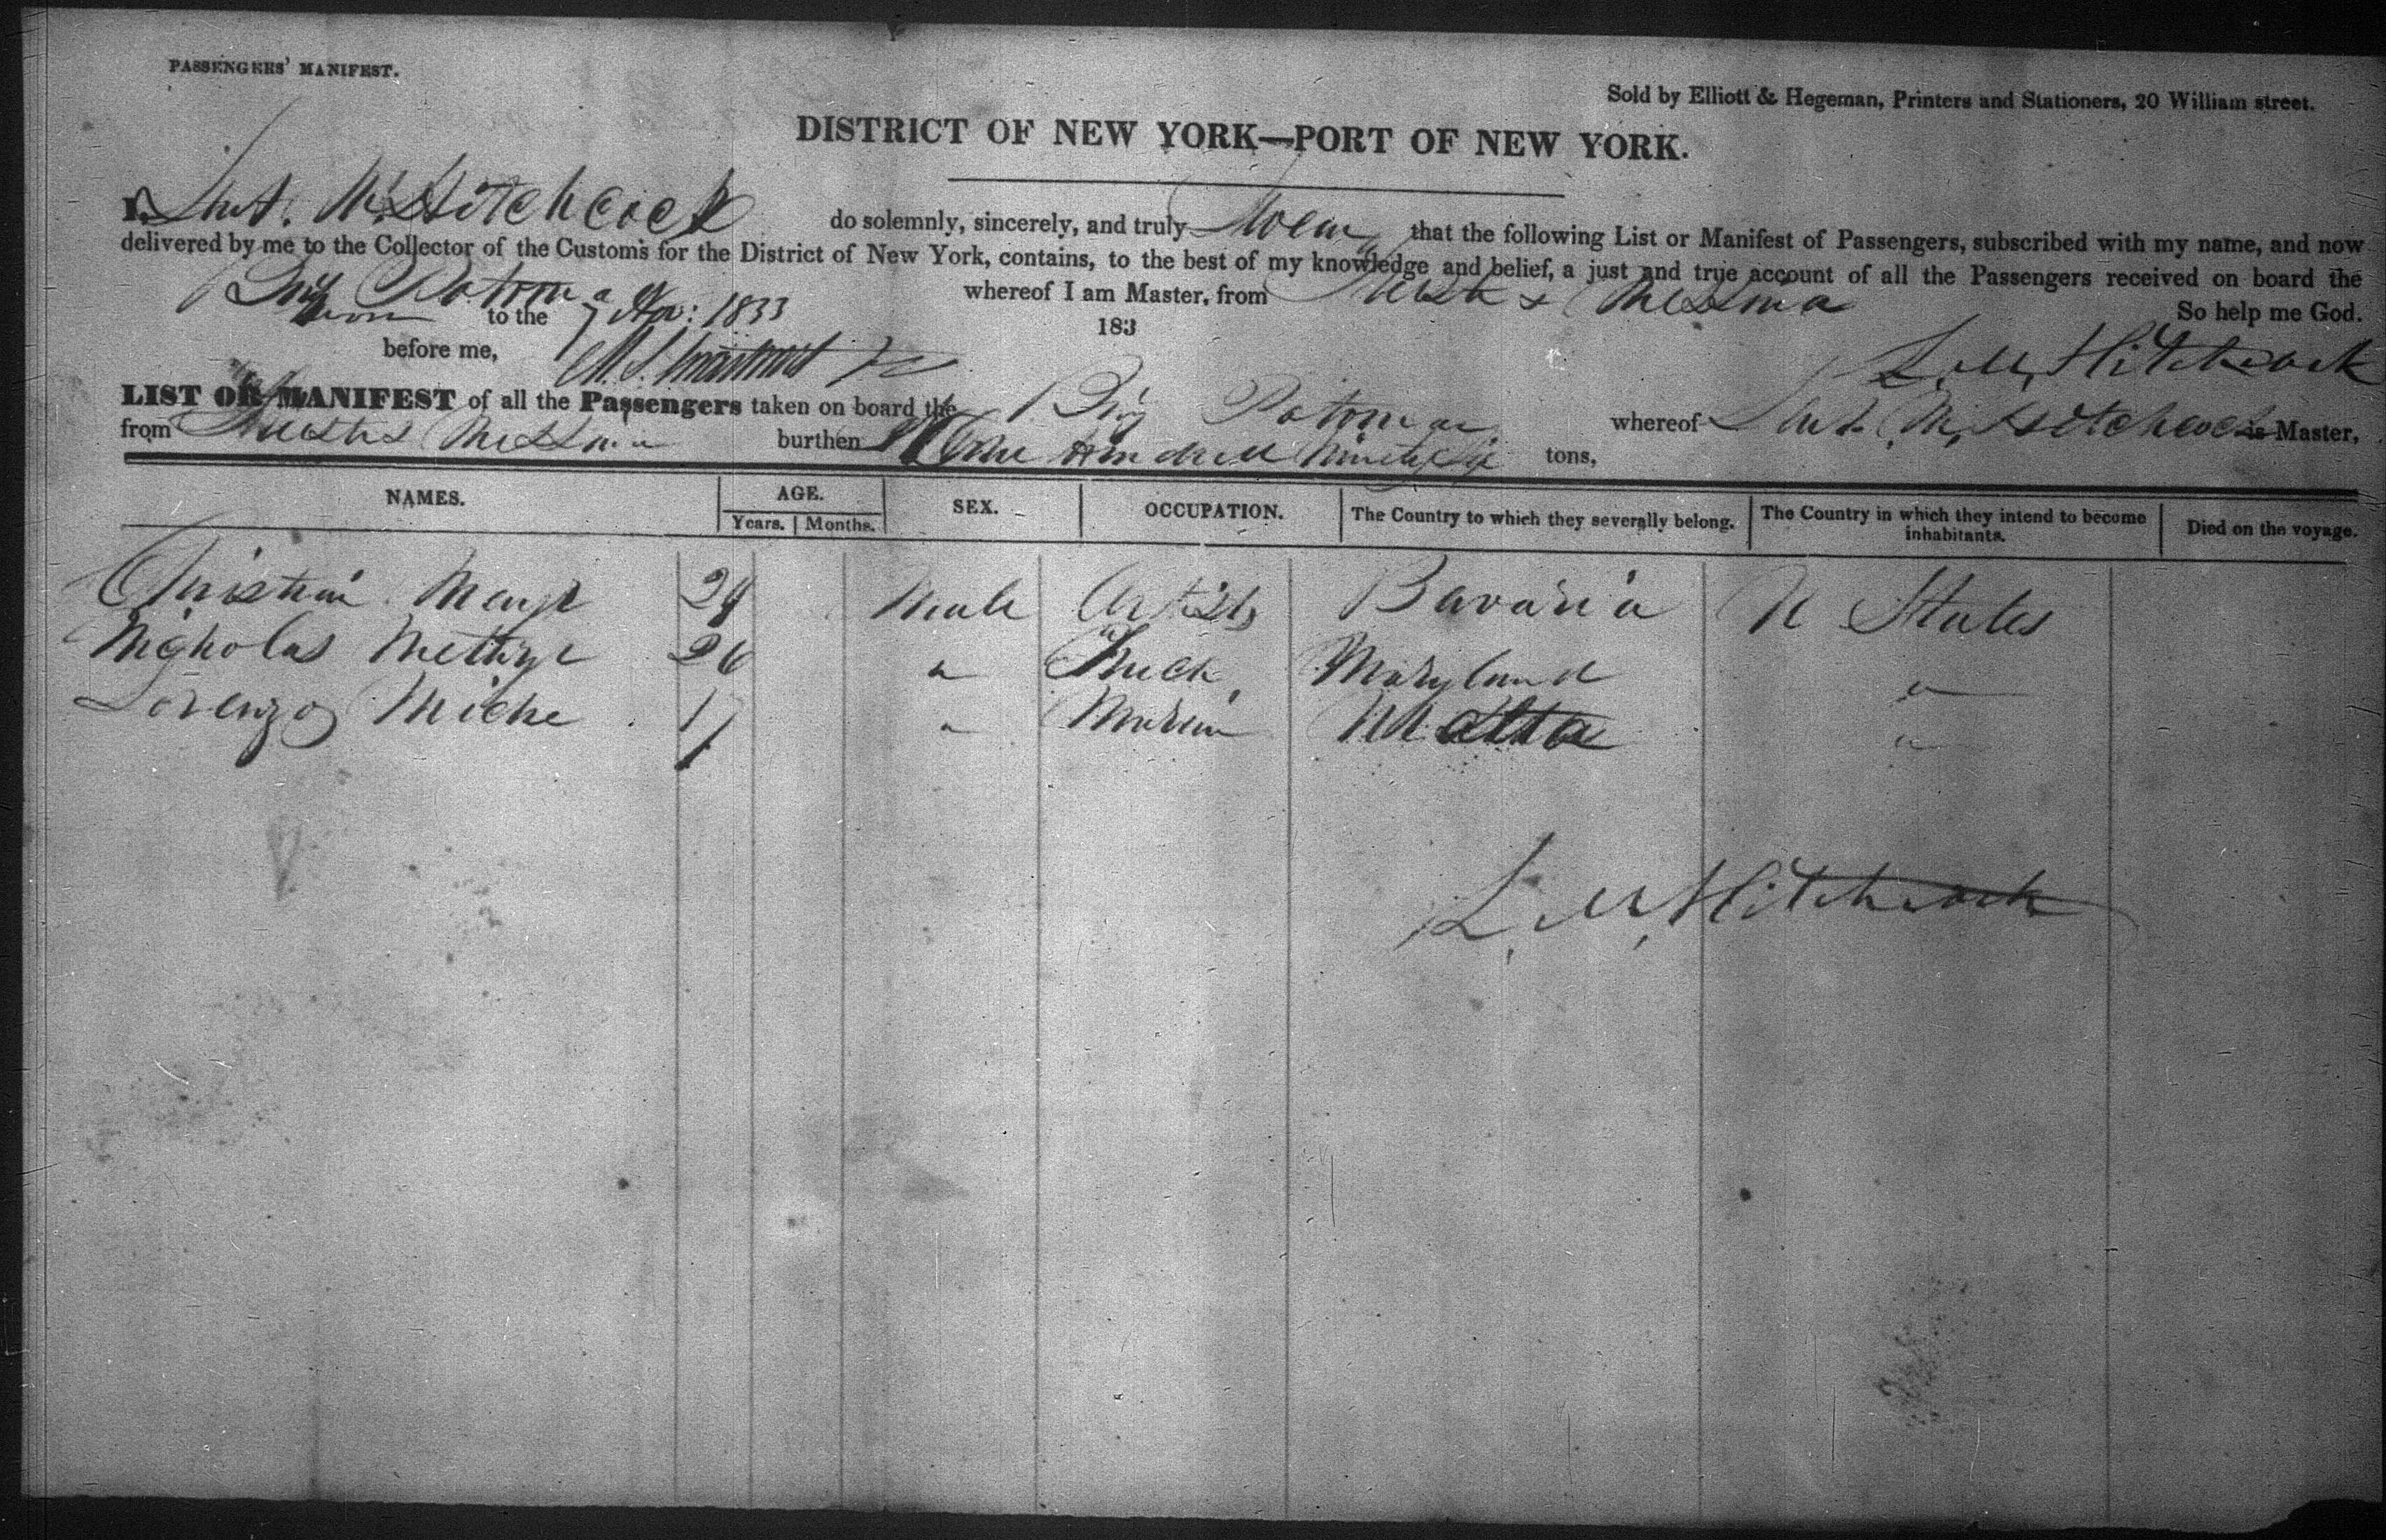 PASSENGERS' MANIFEST.
Sold by Elliott & Hegeman, Printers and Stationers, 20 William street.
DISTRICT OF NEW YORK—PORT OF NEW YORK.
I, M. Hitchcock do solemnly, sincerely, and truly Swear that the following List or Manifest of Passengers, subscribed with my name, and now
delivered by me to the Collector of the Customs for the District of New York, contains, to the best of my knowledge and belief, a just and true account of all the Passengers received on board the
Brig whereof I am Master, from & Messina So help me God.
Sworn to the 7 1833 183
before me, L. M. Hitchcock
LIST OR MANIFEST of all the Passengers taken on board the Brig whereof M. Hitchcock is Master,
from Messina burthen One Hundred Ninety Six tons,
NAMES. AGE. SEX. OCCUPATION. The Country to which they severally belong. The Country in which they intend to become inhabitants. Died on the voyage.
Years. Months.
Christian 24 Male Artist Bavaria U States
Nicholas 26 " Maryland "
Lorenzo Miche " Malta "
L. M. Hitchcock